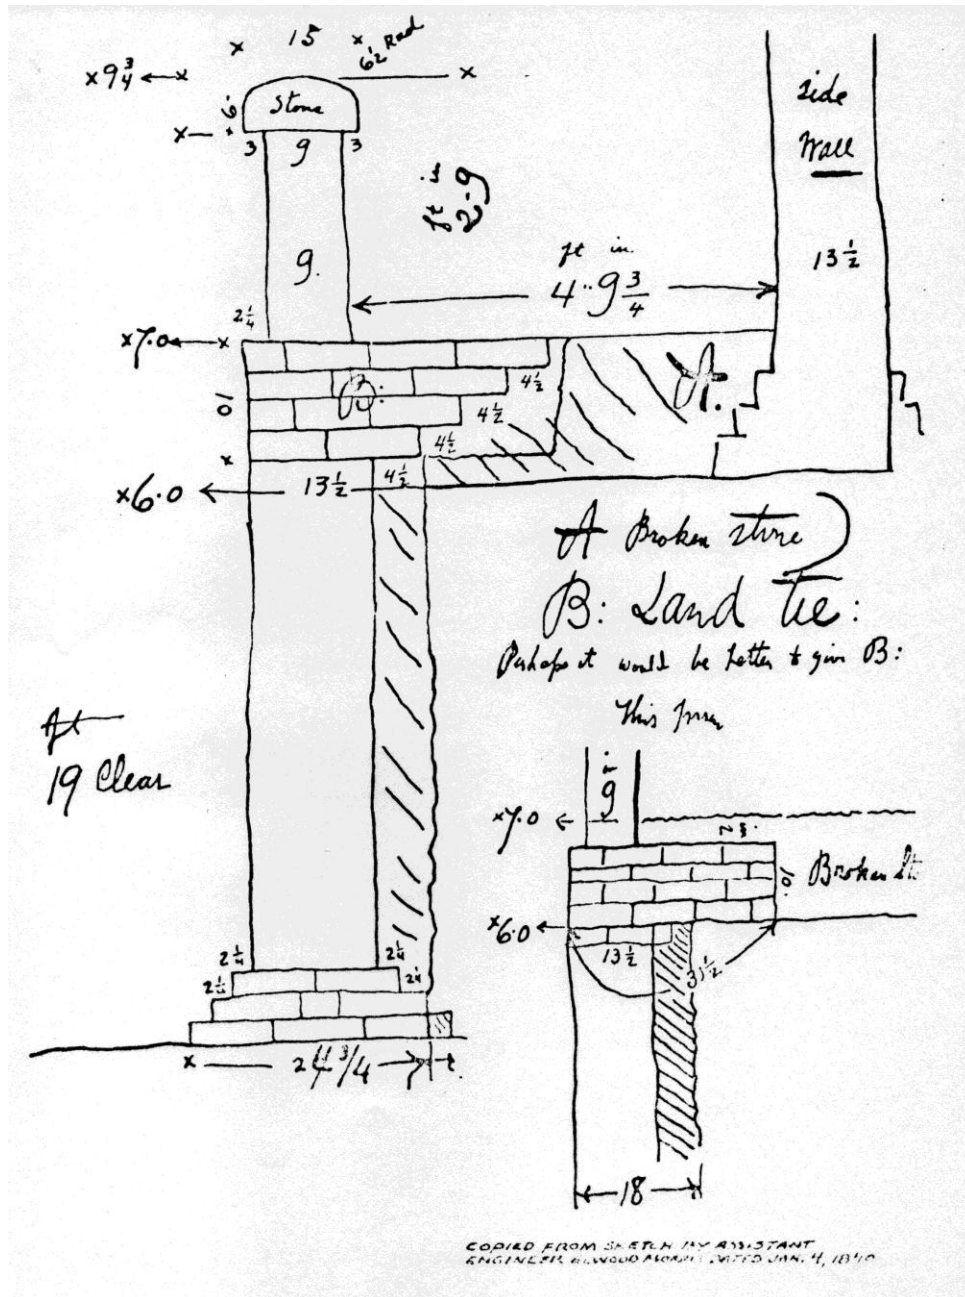 15
6½ Rad
x 9¾
Stone
6
3 9 3
side
Wall
ft
2-9
9.
ft in
4" 9¾
13½
2¼
x7.0
B:
A.
10
4½
4½
4½
x6.0
13½
4½
A Broken stone
B: Land tie:
Perhaps it would be better to give B:
this form
ft
19 Clear
in
9
x7.0
10
Broken
x6.0
13½
31½
2¼
2¼
2¼
2¼
18
COPIED FROM SKETCH BY ASSISTANT
ENGINEER ELWOOD MORRIS DATED JAN. 4, 1840